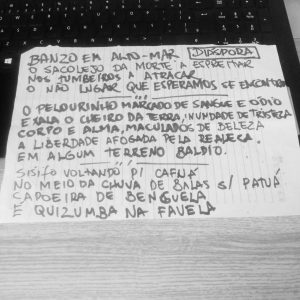 BANZO EM ALTO-MAR DIÁSPORA
O SACOLEJO DA MORTE A ESPREITAR
NOS TUMBEIROS A ATRACAR
O NÃO LUGAR QUE ESPERAMOS SE ENCONTRA
O PELOURINHO MARCADO DE SANGUE E ÓDIO
EXALA O CHEIRO DA TERRA, INUNDADE DE TRISTEZA
CORPO E ALMA, MACULADOS DE BELEZA
A LIBERDADE AFOGADA PELA REALEZA
EM ALGUM TERRENO BALDIO.
SISIFO VOLTANDO P/ CAFUA
NO MEIO DA CHUVA DE BALAS S/ PATUÁ
CAPOEIRA DE BENGUELA
E QUIZUMBA NA FAVELA